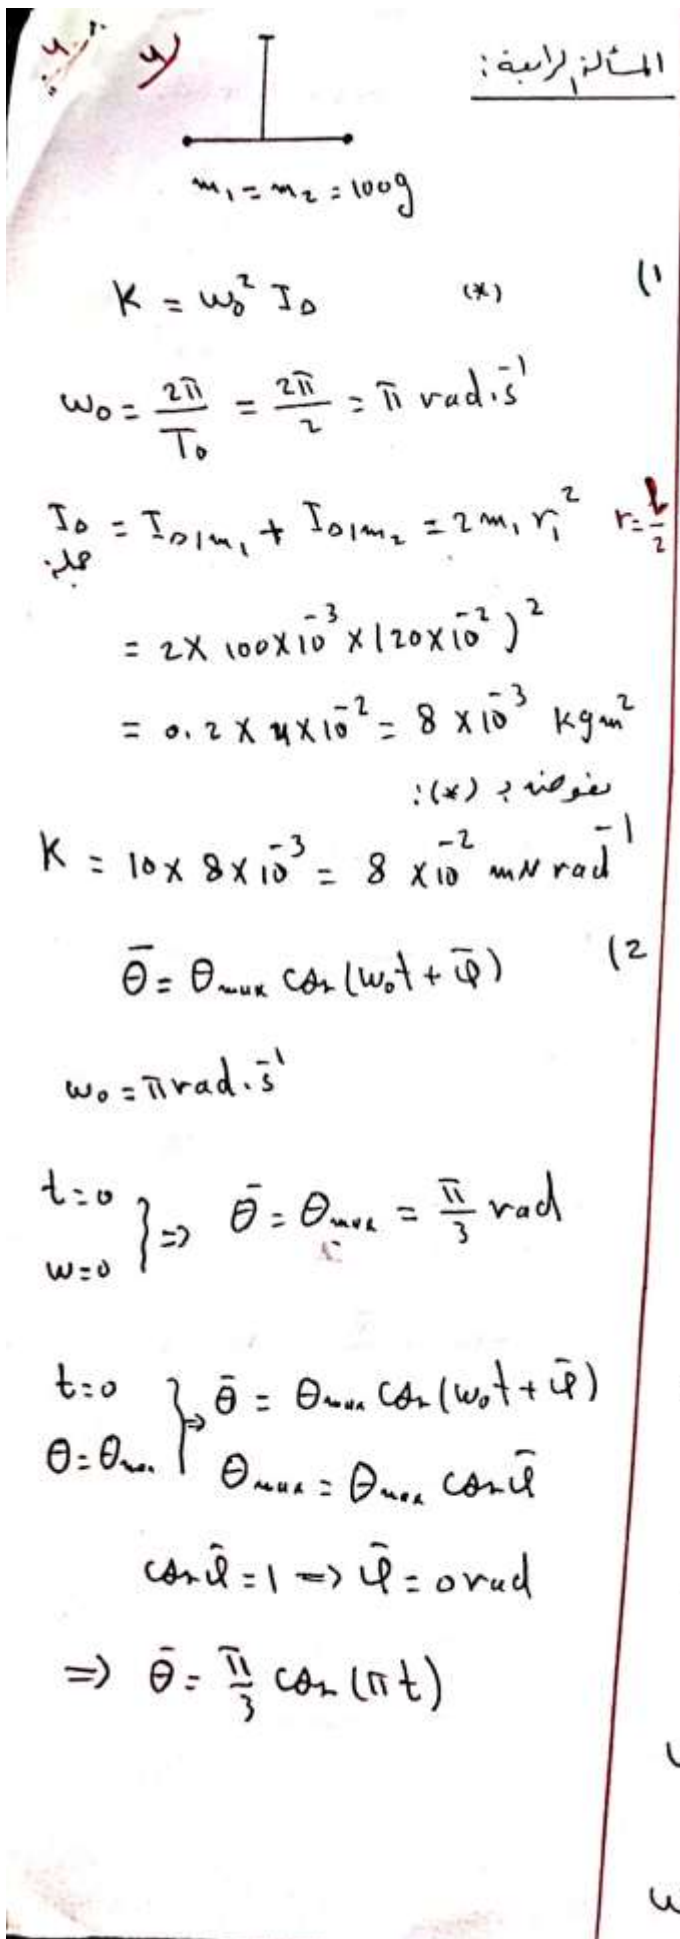 المسألة الرابعة:
m₁ = m₂ = 100g
1)
K = ω₀² I_Δ (*)
ω₀ = 2π/T₀ = 2π/2 = π rad.s⁻¹
I_Δ جملة = I_Δ/m₁ + I_Δ/m₂ = 2m₁ r₁² r = L/2
= 2 × 100×10⁻³ × (20×10⁻²)²
= 0.2 × 4×10⁻² = 8 × 10⁻³ kgm²
نعوض بـ (*):
K = 10 × 8×10⁻³ = 8 × 10⁻² mN rad⁻¹
2)
θ̄ = θmax cos(ω₀t + φ̄)
ω₀ = π rad.s⁻¹
t=0
ω=0 } ⇒ θ̄ = θmax = π/3 rad
t=0 } ⇒ θ̄ = θmax cos(ω₀t + φ̄)
θ=θmax θmax = θmax cos φ̄
cos φ̄ = 1 ⇒ φ̄ = 0 rad
⇒ θ̄ = π/3 cos(πt)